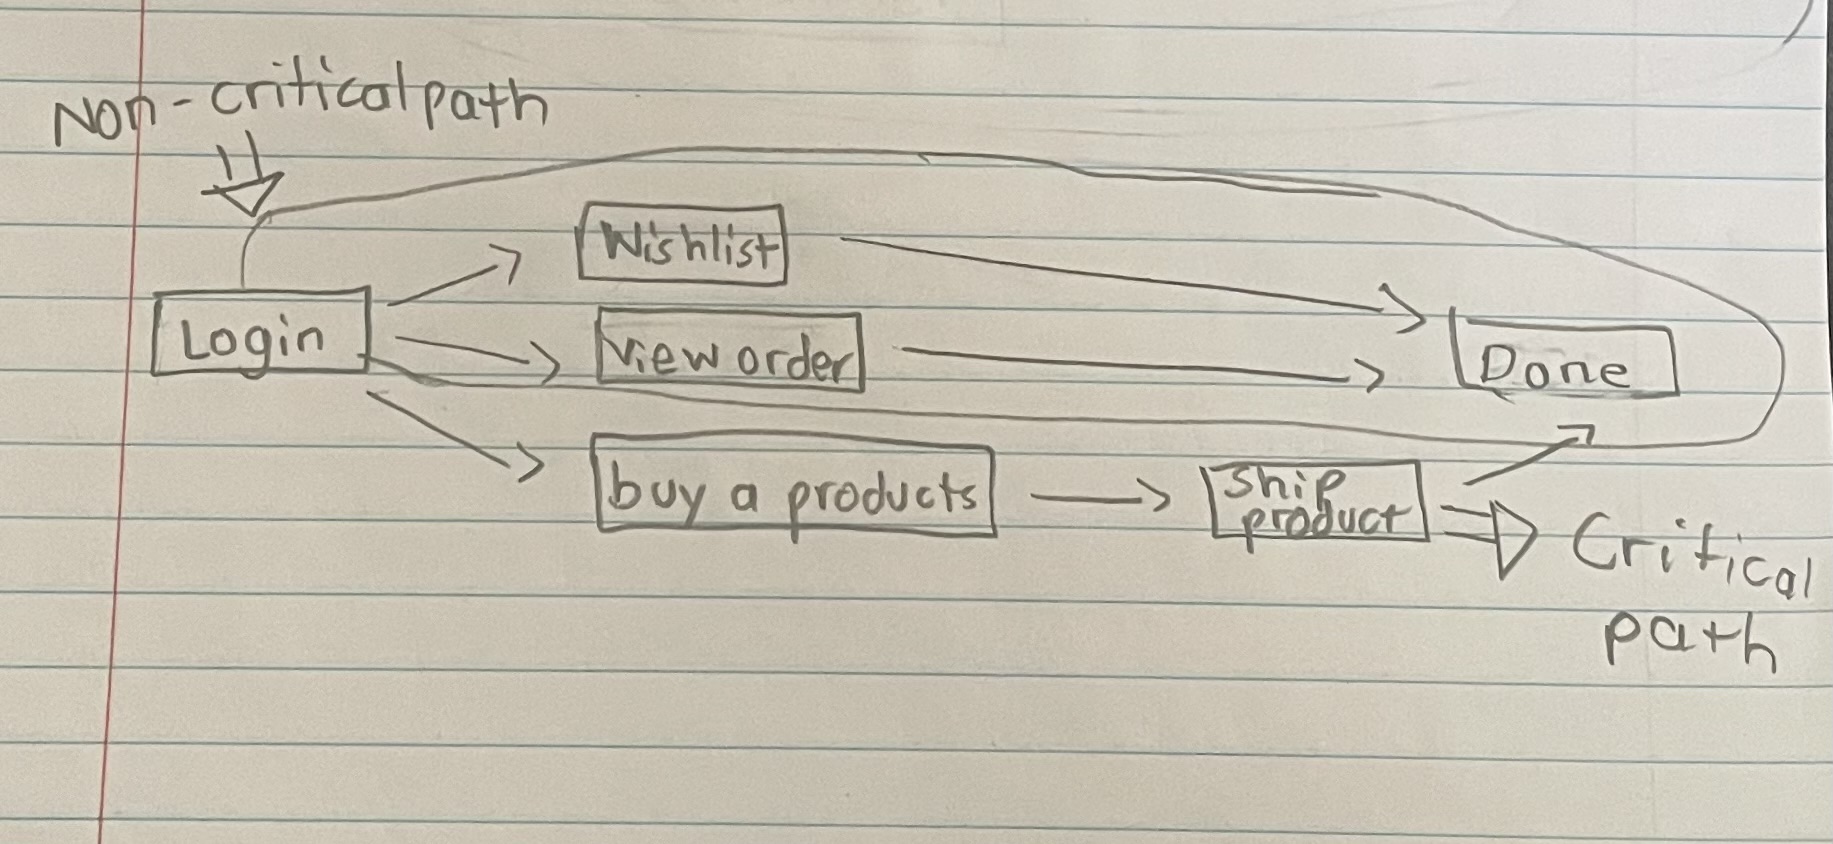 Non-critical path
Wishlist
Login
view order
Done
buy a products
ship
product
Critical
path